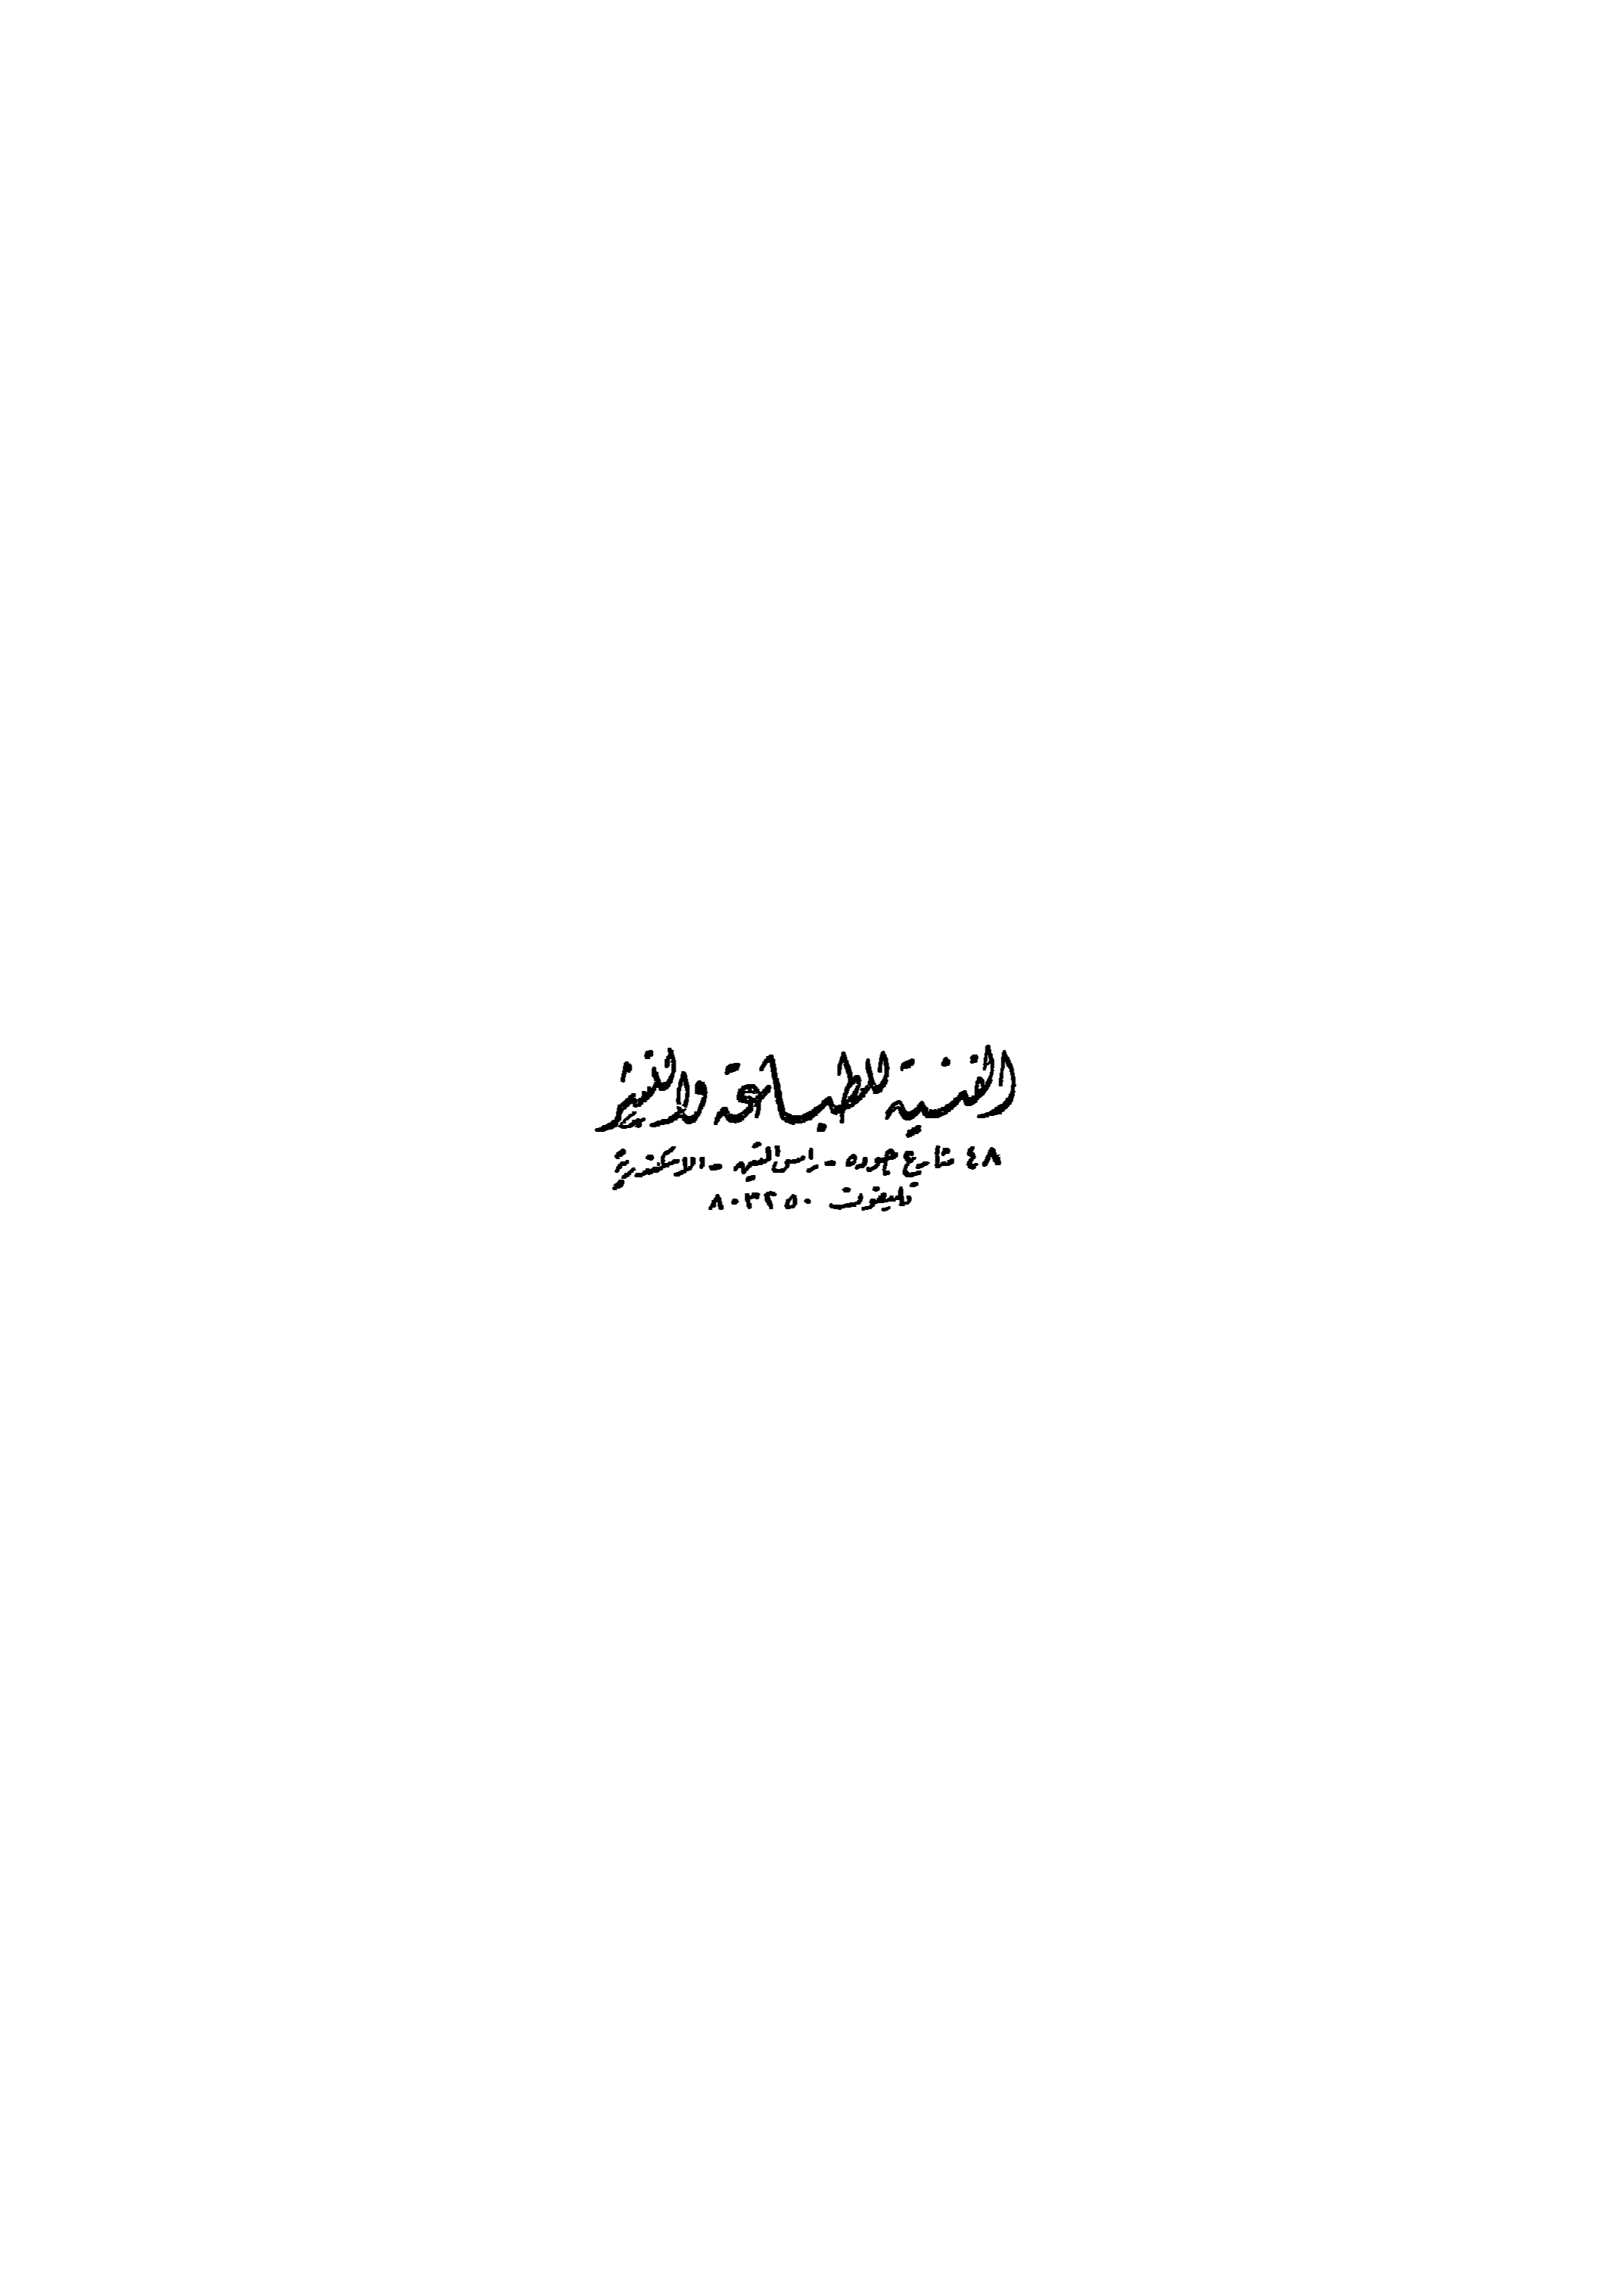 الفنية للطباعة والنشر
٤٨ شارع حوده - راس التين - الاسكندرية
تليفون ٨٠٣٢٥٠